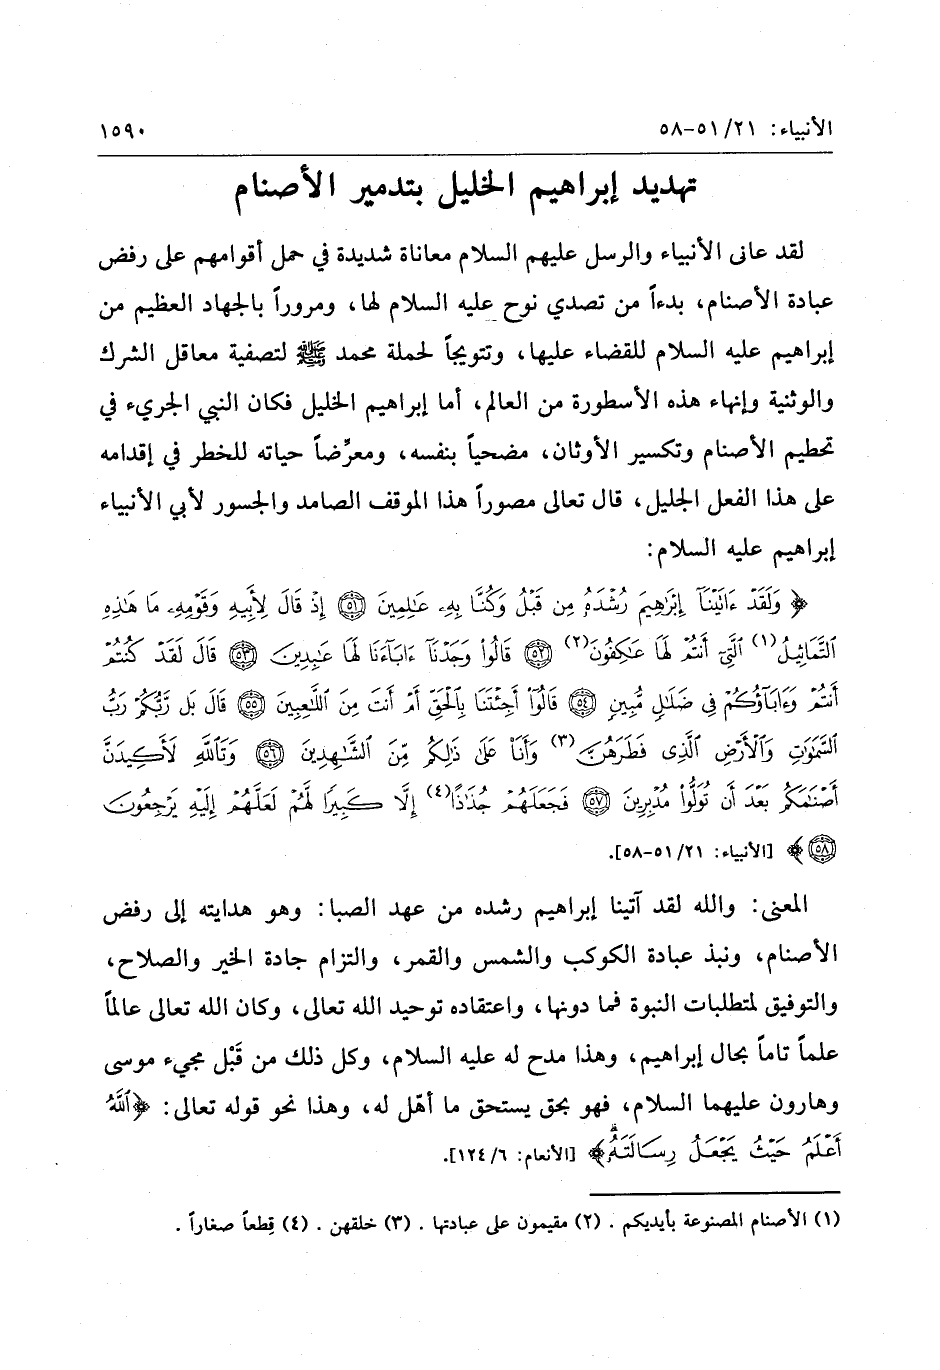 الأنبياء: ٢١/ ٥١-٥٨
١٥٩٠
تهديد إبراهيم الخليل بتدمير الأصنام
لقد عانى الأنبياء والرسل عليهم السلام معاناة شديدة في حمل أقوامهم على رفض
عبادة الأصنام، بدءاً من تصدي نوح عليه السلام لها، ومروراً بالجهاد العظيم من
إبراهيم عليه السلام للقضاء عليها، وتتويجاً لحملة محمد ﷺ لتصفية معاقل الشرك
والوثنية وإنهاء هذه الأسطورة من العالم، أما إبراهيم الخليل فكان النبي الجريء في
تحطيم الأصنام وتكسير الأوثان، مضحياً بنفسه، ومعرِّضاً حياته للخطر في إقدامه
على هذا الفعل الجليل، قال تعالى مصوراً هذا الموقف الصامد والجسور لأبي الأنبياء
إبراهيم عليه السلام:
﴿ وَلَقَدْ ءَاتَيْنَآ إِبْرَٰهِيمَ رُشْدَهُۥ مِن قَبْلُ وَكُنَّا بِهِۦ عَٰلِمِينَ ۝٥١ إِذْ قَالَ لِأَبِيهِ وَقَوْمِهِۦ مَا هَٰذِهِ
ٱلتَّمَاثِيلُ(١) ٱلَّتِىٓ أَنتُمْ لَهَا عَٰكِفُونَ(٢) ۝٥٢ قَالُوا۟ وَجَدْنَآ ءَابَآءَنَا لَهَا عَٰبِدِينَ ۝٥٣ قَالَ لَقَدْ كُنتُمْ
أَنتُمْ وَءَابَآؤُكُمْ فِى ضَلَٰلٍ مُّبِينٍ ۝٥٤ قَالُوٓا۟ أَجِئْتَنَا بِٱلْحَقِّ أَمْ أَنتَ مِنَ ٱللَّٰعِبِينَ ۝٥٥ قَالَ بَل رَّبُّكُمْ رَبُّ
ٱلسَّمَٰوَٰتِ وَٱلْأَرْضِ ٱلَّذِى فَطَرَهُنَّ(٣) وَأَنَا۠ عَلَىٰ ذَٰلِكُم مِّنَ ٱلشَّٰهِدِينَ ۝٥٦ وَتَٱللَّهِ لَأَكِيدَنَّ
أَصْنَٰمَكُم بَعْدَ أَن تُوَلُّوا۟ مُدْبِرِينَ ۝٥٧ فَجَعَلَهُمْ جُذَٰذًا(٤) إِلَّا كَبِيرًا لَّهُمْ لَعَلَّهُمْ إِلَيْهِ يَرْجِعُونَ
۝٥٨ ﴾ [الأنبياء: ٢١/ ٥١-٥٨].
المعنى: والله لقد آتينا إبراهيم رشده من عهد الصبا: وهو هدايته إلى رفض
الأصنام، ونبذ عبادة الكوكب والشمس والقمر، والتزام جادة الخير والصلاح،
والتوفيق لمتطلبات النبوة فما دونها، واعتقاده توحيد الله تعالى، وكان الله تعالى عالماً
علماً تاماً بحال إبراهيم، وهذا مدح له عليه السلام، وكل ذلك من قَبْل مجيء موسى
وهارون عليهما السلام، فهو بحق يستحق ما أهّل له، وهذا نحو قوله تعالى: ﴿ٱللَّهُ
أَعْلَمُ حَيْثُ يَجْعَلُ رِسَالَتَهُۥ﴾ [الأنعام: ٦/ ١٢٤].
(١) الأصنام المصنوعة بأيديكم . (٢) مقيمون على عبادتها . (٣) خلقهن . (٤) قِطعاً صغاراً .